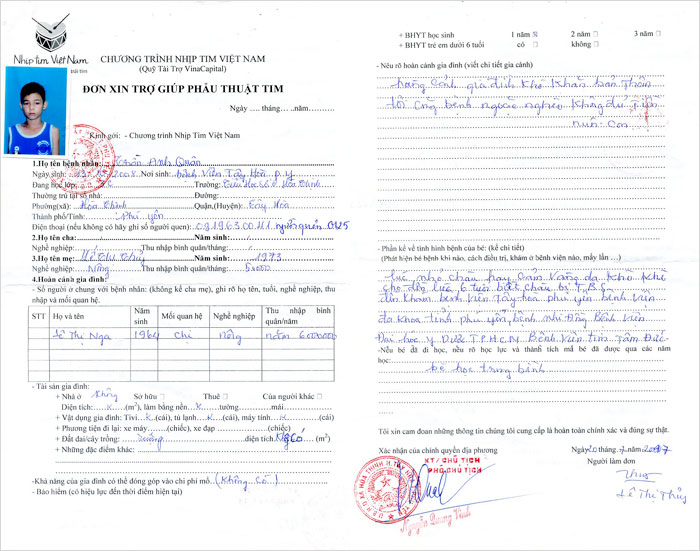 Nhịp tim Việt Nam
trái tim
CHƯƠNG TRÌNH NHỊP TIM VIỆT NAM
(Quỹ Tài Trợ VinaCapital)
ĐƠN XIN TRỢ GIÚP PHẪU THUẬT TIM
Ngày .... tháng....năm.........
Kính gởi: - Chương trình Nhịp Tim Việt Nam
1.Họ tên bệnh nhân: Trần Anh Quân
Ngày sinh: 2008 Nơi sinh: bệnh viện Tây Hòa P.Y
Đang học lớp: Trường: Tiểu Học Số Hòa Thịnh
Thường trú tại số nhà: Đường:
Phường(xã): Hòa Thịnh Quận,(Huyện): Tây Hòa
Thành phố/Tỉnh: Phú yên
Điện thoại (nếu không có hãy ghi số người quen):
2.Họ tên cha: Năm sinh:
Nghề nghiệp: Thu nhập bình quân/tháng:
3.Họ tên mẹ: Lê Thị Thủy Năm sinh: 1973
Nghề nghiệp: Nông Thu nhập bình quân/tháng:
4.Hoàn cảnh gia đình:
- Số người ở chung với bệnh nhân: (không kể cha mẹ), ghi rõ họ tên, tuổi, nghề nghiệp, thu
nhập và mối quan hệ.
STT Họ và tên Năm sinh Mối quan hệ Nghề nghiệp Thu nhập bình quân/năm
Lê Thị Nga 1964 Chị Nông năm 6000000
- Tài sản gia đình:
+ Nhà ở Không Sở hữu □ Thuê □ Của người khác □
Diện tích: K (m²), làm bằng nền K tường mái
+ Vật dụng gia đình: Tivi K (cái), tủ lạnh K (cái), máy tính K (cái)
+ Phương tiện đi lại: xe máy (chiếc), xe đạp (chiếc)
+ Đất đai/cây trồng: diện tích (m²)
+ Những đặc điểm khác:
-Khả năng của gia đình có thể đóng góp vào chi phí mổ. (Không Có)
- Bảo hiểm (có hiệu lực đến thời điểm hiện tại)
+ BHYT học sinh 1 năm ☒ 2 năm □ 3 năm □
+ BHYT trẻ em dưới 6 tuổi có □ không □
- Nêu rõ hoàn cảnh gia đình (viết chi tiết gia cảnh)
hoàng Cảnh gia đình Khó Khăn bản Thân
tôi Cũng bệnh nghèo Không đủ Tiền
nuôi Con
- Phần kể về tình hình bệnh của bé: (kể chi tiết)
(Phát hiện bị bệnh khi nào, cách điều trị, khám ở bệnh viện nào, mấy lần ...)
lúc nhỏ cháu hay Khò Khè
cho đến lúc 6 tuổi cháu bị
đến Khám bệnh viện Tây hòa phú yên bệnh viện
đa khoa tỉnh phú yên bệnh nhi Đồng Bệnh viện
Đại học Y Dược T.P.H.C.M Bệnh Viện tim Tâm Đức
-Nếu bé đã đi học, nêu rõ học lực và thành tích mà bé đã được qua các năm
học:
bé học trung bình
Tôi xin cam đoan những thông tin chúng tôi cung cấp là hoàn toàn chính xác và đúng sự thật.
Xác nhận của chính quyền địa phương Ngày 20 tháng 7 năm 2017
KT/CHỦ TỊCH Người làm đơn
PHÓ CHỦ TỊCH
Lê Thị Thủy
Nguyễn Quang Vinh